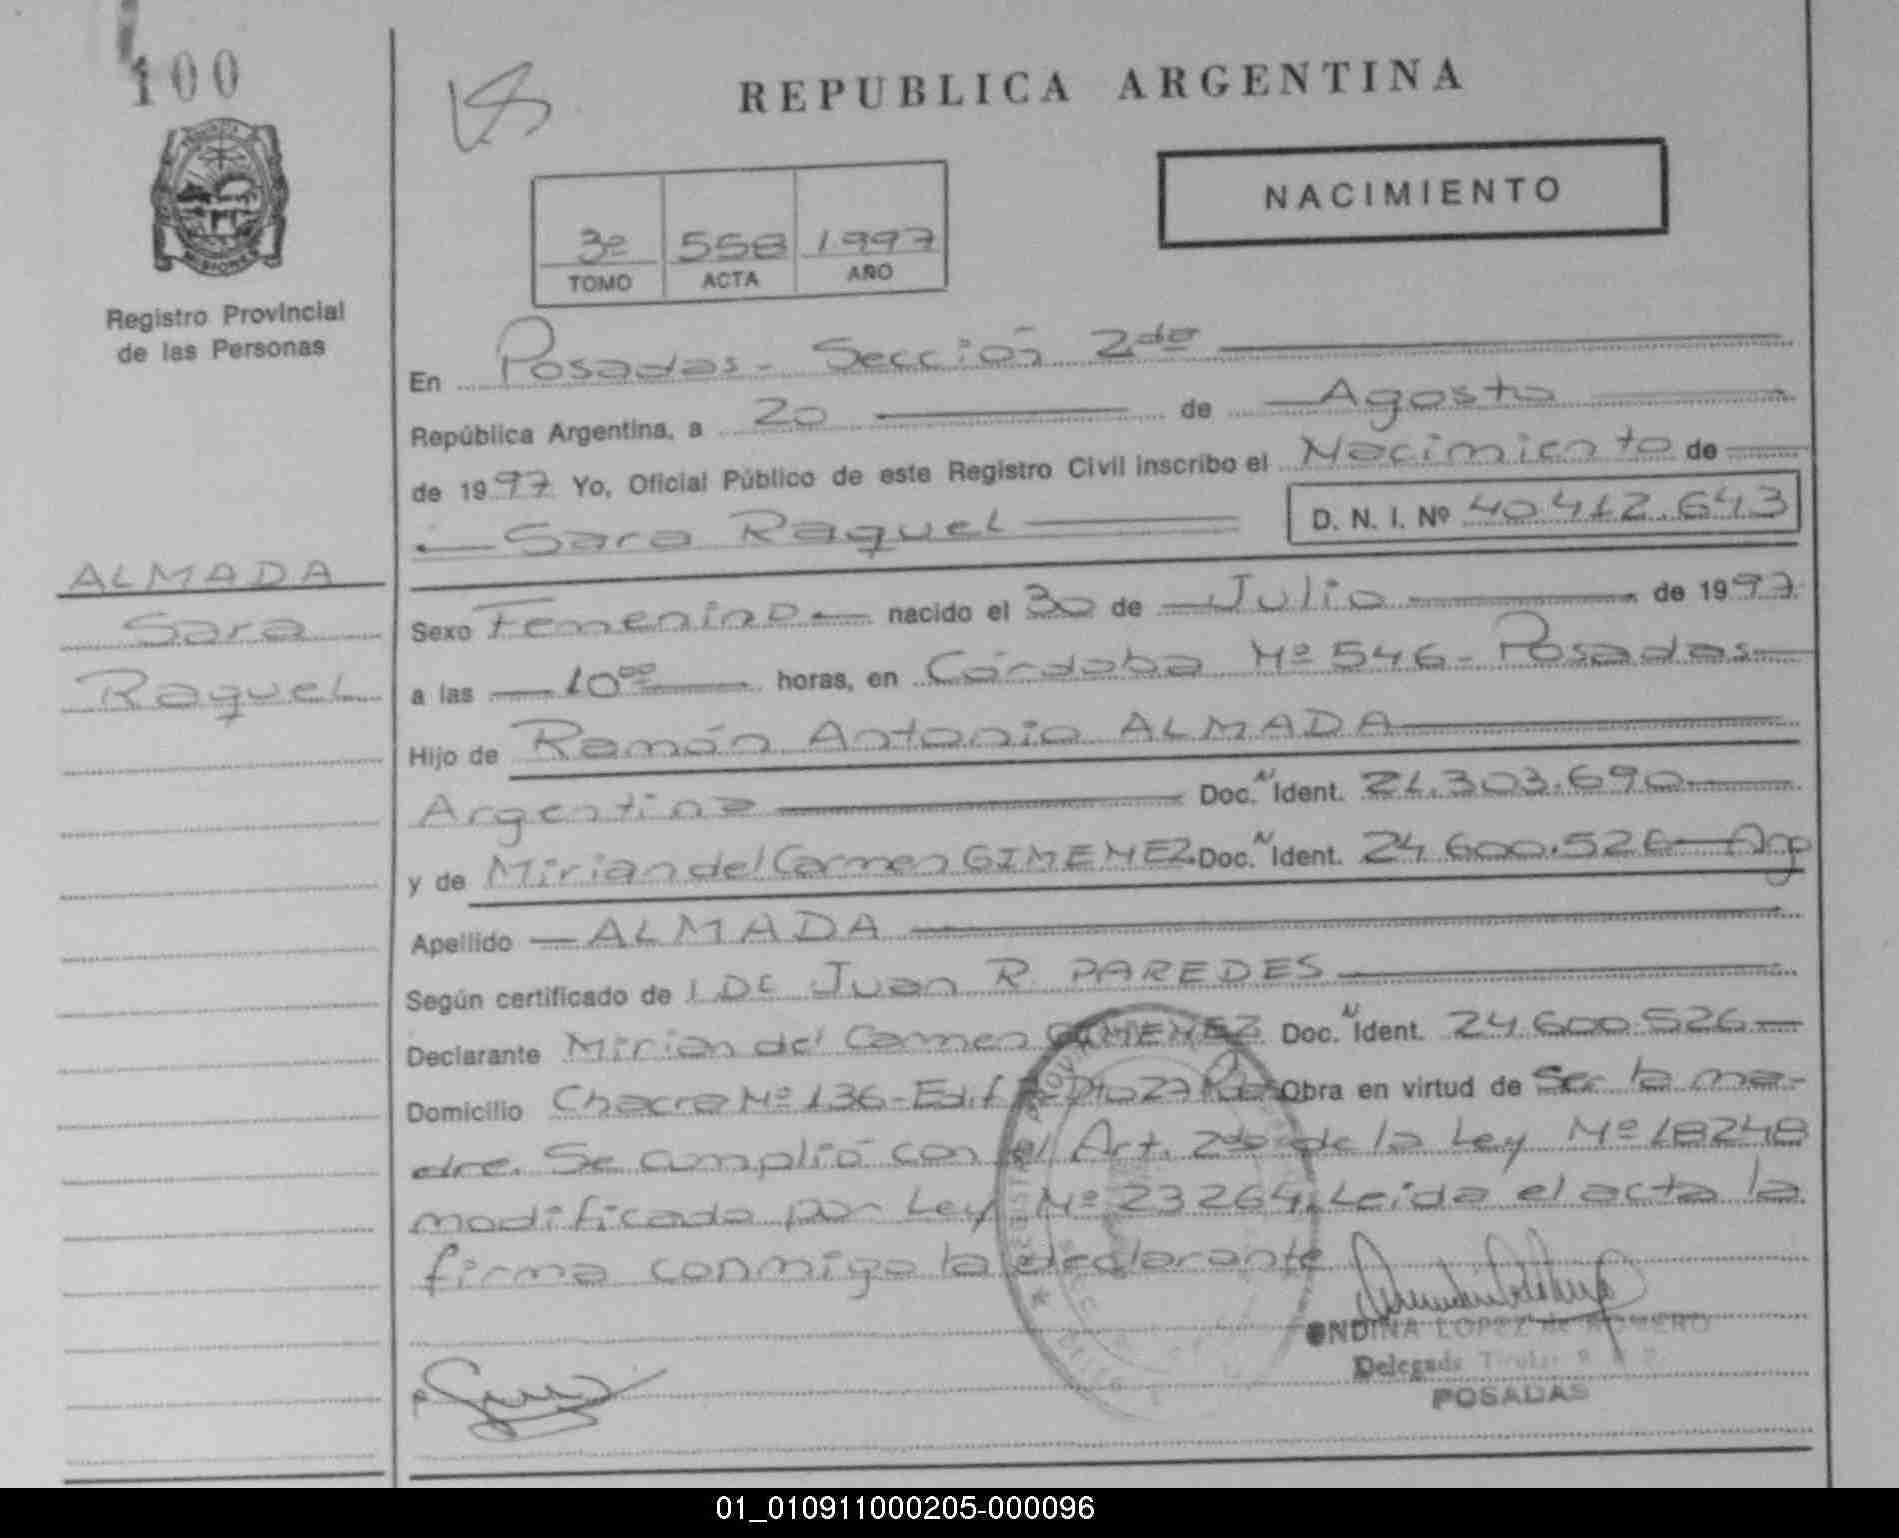 100
REPUBLICA ARGENTINA
NACIMIENTO
MISIONES
Registro Provincial
de las Personas
3º 558 1997
TOMO ACTA AÑO
En Posadas - Sección 2da
República Argentina, a 20 de Agosto
de 1997 Yo, Oficial Público de este Registro Civil inscribo el Nacimiento de
Sara Raquel D. N. I. Nº 40.412.643
ALMADA
Sara
Raquel
Sexo Femenino nacido el 30 de Julio de 1997
a las 10 00 horas, en Córdoba Nº 546 - Posadas
Hijo de Ramón Antonio ALMADA
Argentina Doc. N Ident. 21.303.690
y de Mirian del Carmen GIMENEZ Doc. N Ident. 24.600.526 - Arg
Apellido ALMADA
Según certificado de Juan R. PAREDES
Declarante Mirian del Carmen GIMENEZ Doc. N Ident. 24.600.526
Domicilio Chacra Nº 136 - Edif. Obra en virtud de Ser la ma-
dre. Se cumplió con el Art. 2do de la Ley Nº 18248
modificado por Ley Nº 23264. Leida el acta la
firma conmigo la declarante
ONDINA LOPEZ de ROMERO
Delegada Titular
POSADAS
01_010911000205-000096